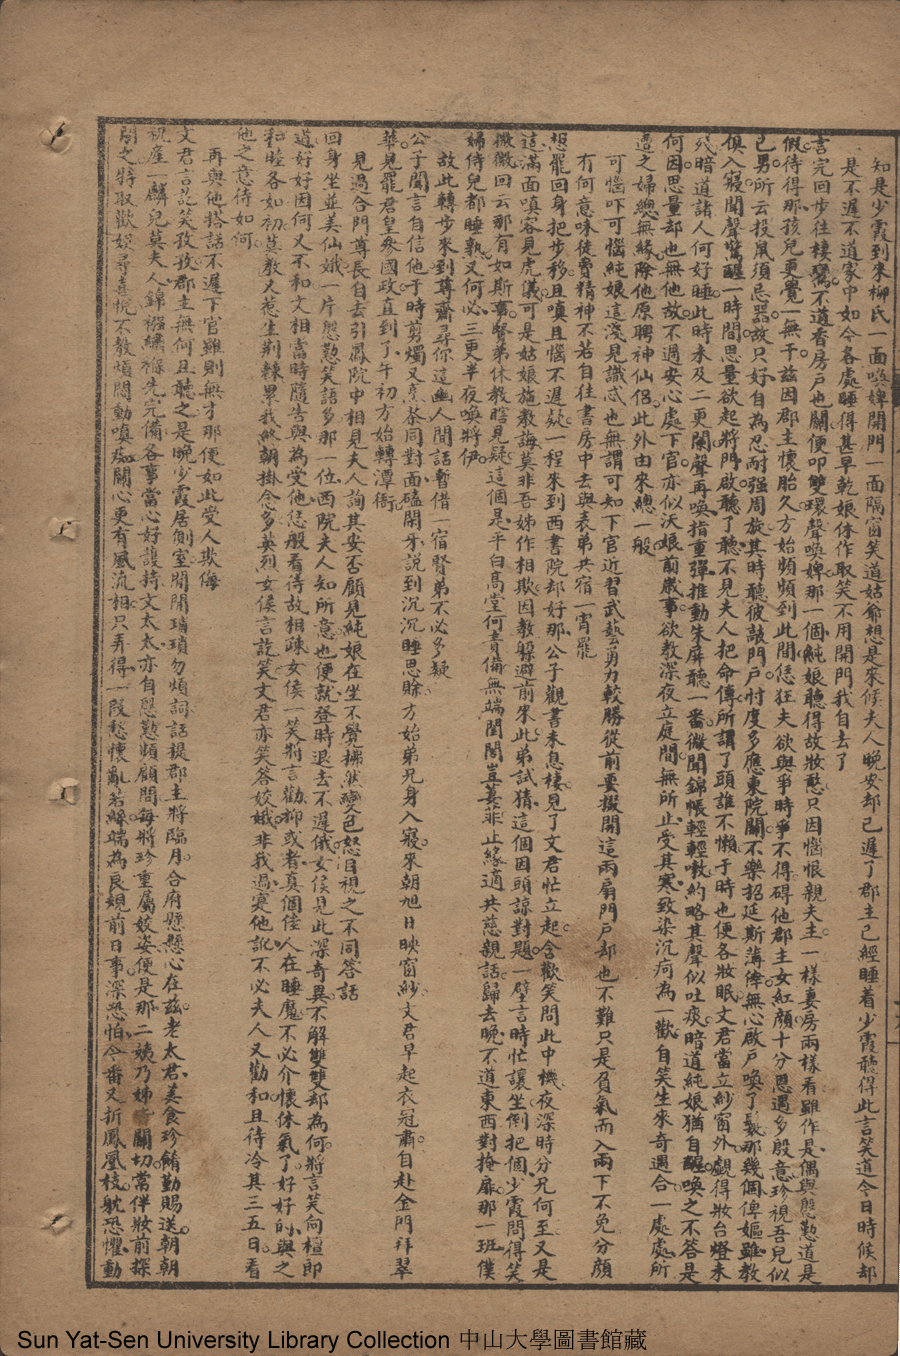 知是少霞到來柳氏一面喚婢開門一面隔窗笑道姑爺想是來候夫人晚安却已遲了郡主已經睡着少霞聽得此言笑道今日時候却
是不遲不道家中如今各處睡得甚早乾娘休作取笑不用開門我自去了
言完回步往棲鸞不道香房戶也關便叩雙環聲喚婢那一個純娘聽得故妝憨只因惱恨親夫主一樣妻房兩樣看雖作是偶與慇懃道是
假待得那孩兒更覺一無干茲因郡主懷胎久方始頻頻到此間恁狂夫欲與爭時爭不得碍他郡主女紅顏十分恩遇多殷意珍視吾兒似
己男所云投鼠須忌器故只好自為忍耐强周旋其時聽彼敲門戶忖度多應東院關不樂招延斯薄倖無心啟戶喚了鬟那幾個婢嫗雖教
俱入寢聞聲驚醒一時間思量欲起將門啟聽了聽不見夫人把命傳所謂了頭誰不懶于時也便各妝眠文君當立紗窗外覷得妝台燈未
殘暗道諸人何好睡此時未及二更闌聲再喚指重彈推動朱屏聽一番微聞錦帳輕輕嗽約略其聲似吐痰暗道純娘猶自醒喚之不答是
何因思量却也無他故不過安心處下官亦似沃娘前歲事欲教深夜立庭間無所止受其寒致染沉疴為一歡自笑生來奇遇合一處處所
遭之婦總無緣除他原聘神仙侶此外由來總一般
可惱吓可惱純娘這淺見識忒也無謂可知下官近習武藝勇力較勝從前要撥開這兩扇門戶却也不難只是負氣而入兩下不免分顏
有何意味徒費精神不若自往書房中去與表弟共宿一宵罷
想罷回身把步移且嗔且惱不遲疑一程來到西書院却好那公子觀書未息棲見了文君忙立起含歡笑問此中機夜深時分兄何至又是
這滿面嗔容見虎儀可是姑娘施教誨莫非吾姊作相欺因教躲避前來此弟試猜這個因頭諒對題一壁言時忙讓坐倒把個少霞問得笑
微微回云那有如斯事賢弟休教瞎見疑這個是平白高堂何責備無端閨閫豈萋菲止緣適共慈親話歸去晚不道東西對掩扉那一班僕
婦侍兒都睡熟又何必三更半夜喚將伊
故此轉步來到尊齋尋你這幽人閒話暫借一宿賢弟不必多疑
公子聞言自信他于時剪燭又烹茶同對面磕閑牙說到沉沉睡思賒方始弟兄身入寢來朝旭日映窗紗文君早起衣冠肅自赴金門拜翠
華見罷君皇參國政直到了午初方始轉潭衙
見過合門尊長自去引鳳院中相見夫人詢其安否顧見純娘在坐不覺拂然變色怒目視之不同答話
回身坐並美仙娥一片慇懃笑語多那一位西院夫人知所意也便就登時退去不遲俄女侯見此深奇異不解雙雙却為何將言笑向檀郎
道好好因何又不和文相當時隨告與為受他恁般看待故相疎女侯一笑前言勸抑或者真個佳人在睡魔不必介懷休氣了好好的與之
和睦各如初莫教又惹生荊棘累我終朝掛念多英烈女侯言訖笑文君亦笑答姣娥非我過寔他訛不必夫人又勸和且待冷其三五日看
他之意待如何
再與他搭話不遲下官雖則無才那便如此受人欺侮
文君言訖笑孜孜郡主無何且聽之是晚少霞居側室閒閒瑣瑣勿煩詞話提郡主將臨月合府懸懸心在茲老太君美食珍餚勤賜送朝朝
祝產一麟兒莫夫人錦襁繡褓先完備各事當心好護持文太太亦自慇懃頻顧問每將珍重屬姣姿便是那二姨乃姊皆關切常伴妝前探
問之特取歡娛尋喜悅不教煩悶動嗔痴關心更有風流相只弄得一段愁懷亂若絲端為良規前日事深恐怕今番又折鳳凰枝躭恐懼動